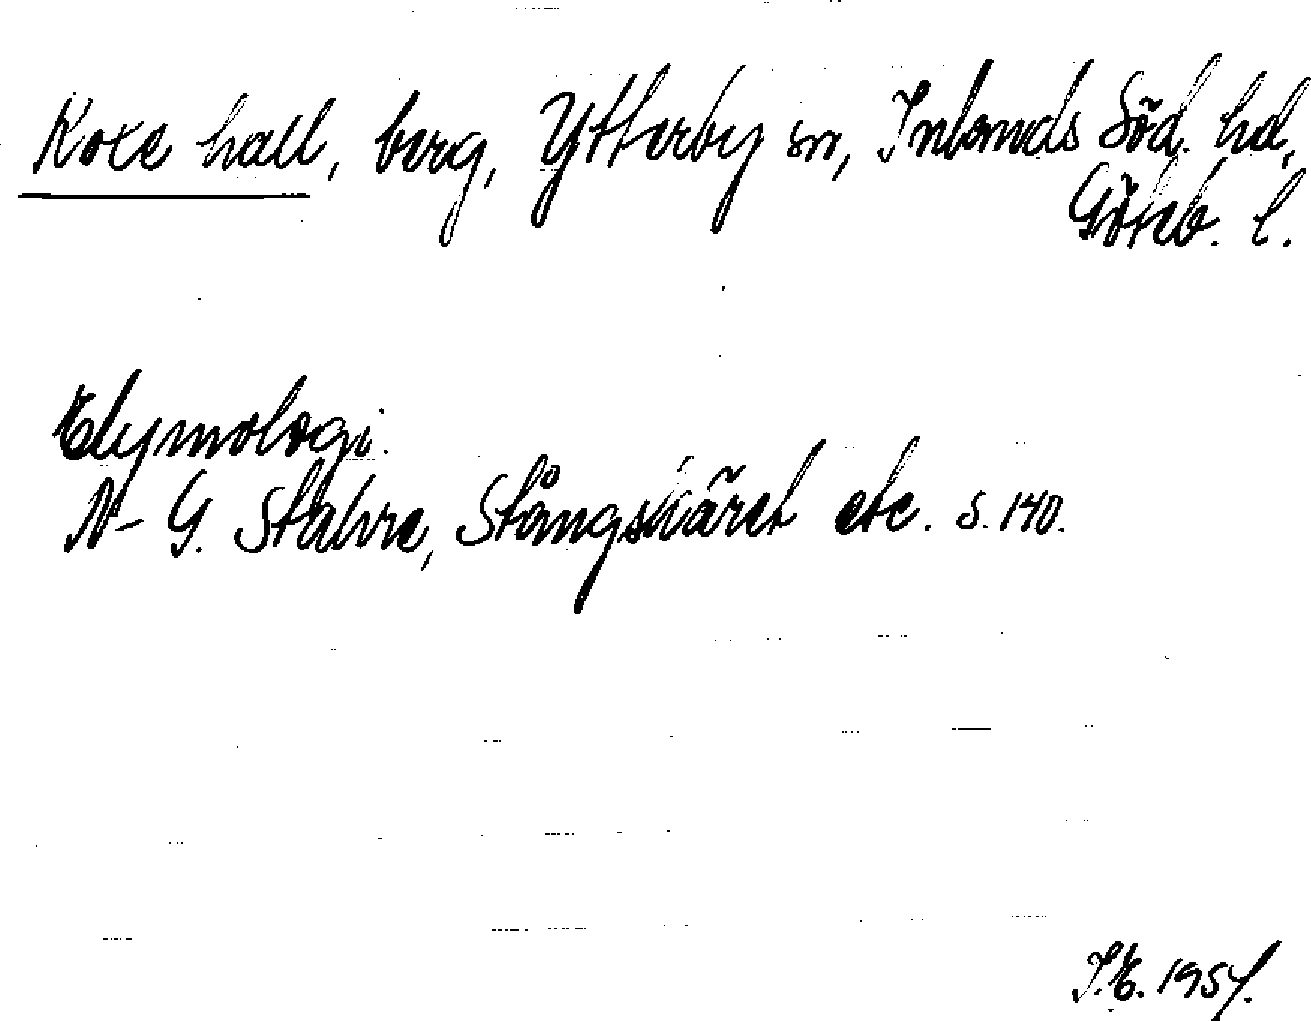 Koxe hall, berg, Ytterby sn, Inlands Söd. hd,
Göteb. l.
Etymologi.
N-G. Stahre, Stångskäret etc. s. 140.
I.E. 1957.